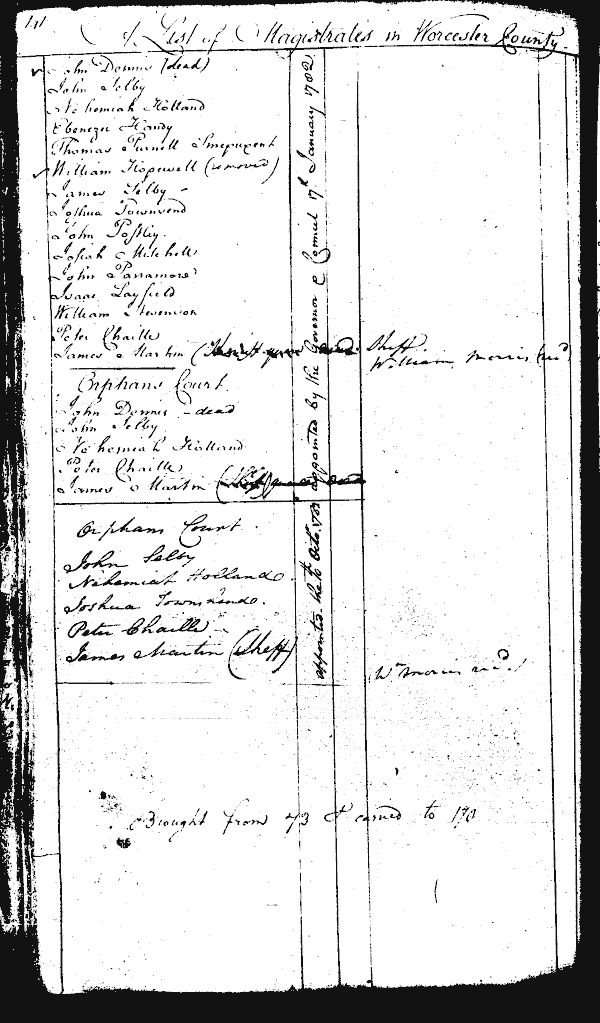 141
A List of Magistrates in Worcester County.
John Donnis (dead)
John Selby
Nehemiah Holland
Ebenezer Handy
Thomas Purnell Sinepuxent
William Hopewell (removed)
James Selby -
Joshua Townsend
John Postley.
Josiah Mitchell
John Parramore
Isaac Layfield
William Stevenson
Peter Chaille
James Martin
Sheff
William Morris
appointed by the Governor & Council 17th January 1782
Orphans Court.
John Donnis - dead
John Selby
Nehemiah Holland
Peter Chaille
James Martin
appointed the 10th Octo.
Orphans Court.
John Selby
Nehemiah Holland
Joshua Townsend.
Peter Chaille -
James Martin (Sheff)
Wm Morris
Brought from 43 & carried to 190